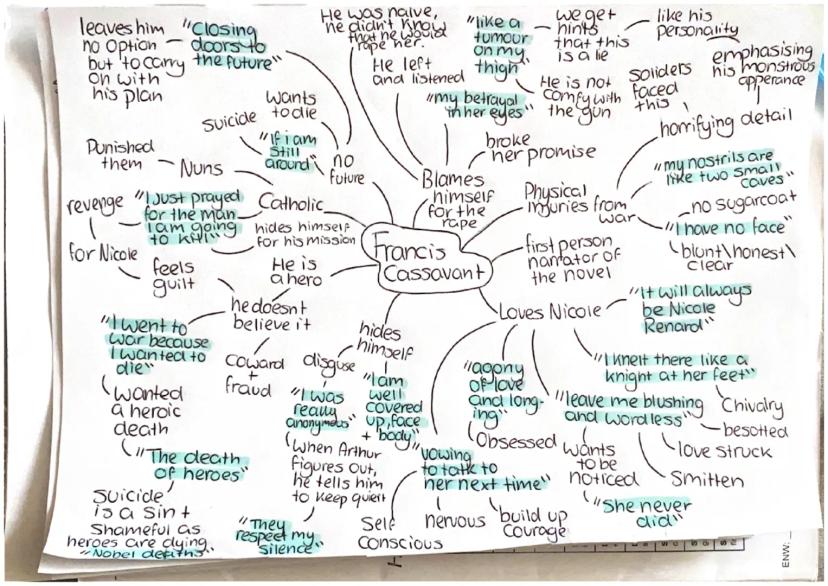 leaves him
no option
but to carry
on with
his plan
"Closing
doors to
the future"
He was naive,
he didn't know
that he would
rape her.
He left
and listened
"like a
tumour
on my
thigh"
we get
hints
that this
is a lie
like his
personality
emphasising
his monstrous
apperance
He is not
comfy with
the gun
Soliders
faced
this
horrifying detail
"my betrayal
in her eyes"
broke
her promise
Blames
himself
for the
rape
wants
to die
Suicide
"If i am
still
around"
no
future
Punished
them
Nuns
Catholic
revenge
"I Just prayed
for the man
I am going
to kill"
for Nicole
hides himself
for his mission
Physical
Injuries from
war
"my nostrils are
like two small
caves"
no sugarcoat
"I have no face"
blunt\honest\
clear
Francis
Cassavant
first person
narrator of
the novel
feels
guilt
He is
a hero
he doesnt
believe it
Coward
+
fraud
"I went to
war because
I wanted to
die"
Wanted
a heroic
death
"The death
of heroes"
Suicide
is a sin +
Shameful as
heroes are dying
"Nobel deaths"
hides
himself
disguse
"I was
really
anonymous"
"I am
well
covered
up, face
+ body"
When Arthur
figures out,
he tells him
to keep quiet
"They
respect my
silence"
Loves Nicole
"It will always
be Nicole
Renard"
"I knelt there like a
knight at her feet"
Chivalry
"leave me blushing
and wordless"
besotted
love struck
Smitten
wants
to be
noticed
"She never
did"
"agony
of love
and long-
ing"
Obsessed
"vowing
to talk to
her next time"
Self
conscious
nervous
build up
courage
ENW: